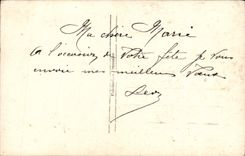 Ma chère Marie
à l'occasion de Votre fête je Vous
envoie mes meilleurs Vœux